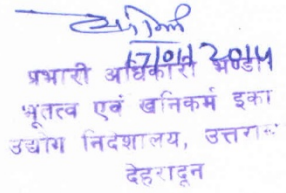 17/01/2014
प्रभारी अधिकारी भण्डा
भूतत्व एवं खनिकर्म इका
उद्योग निदेशालय, उत्तरा
देहरादून